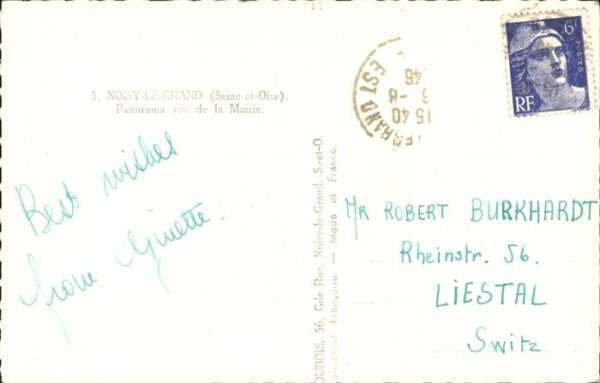 5. NOISY-LE-GRAND (Seine-et-Oise).
Panorama vue de la Mairie.
Best wishes
from Ginette.
56, Gde Rue, Noisy-le-Grand, S.-et-O.
Made in France.
6F
POSTES
RF
EST
15 40
3 -8
46
MR ROBERT BURKHARDT
Rheinstr. 56.
LiESTAL
Switz